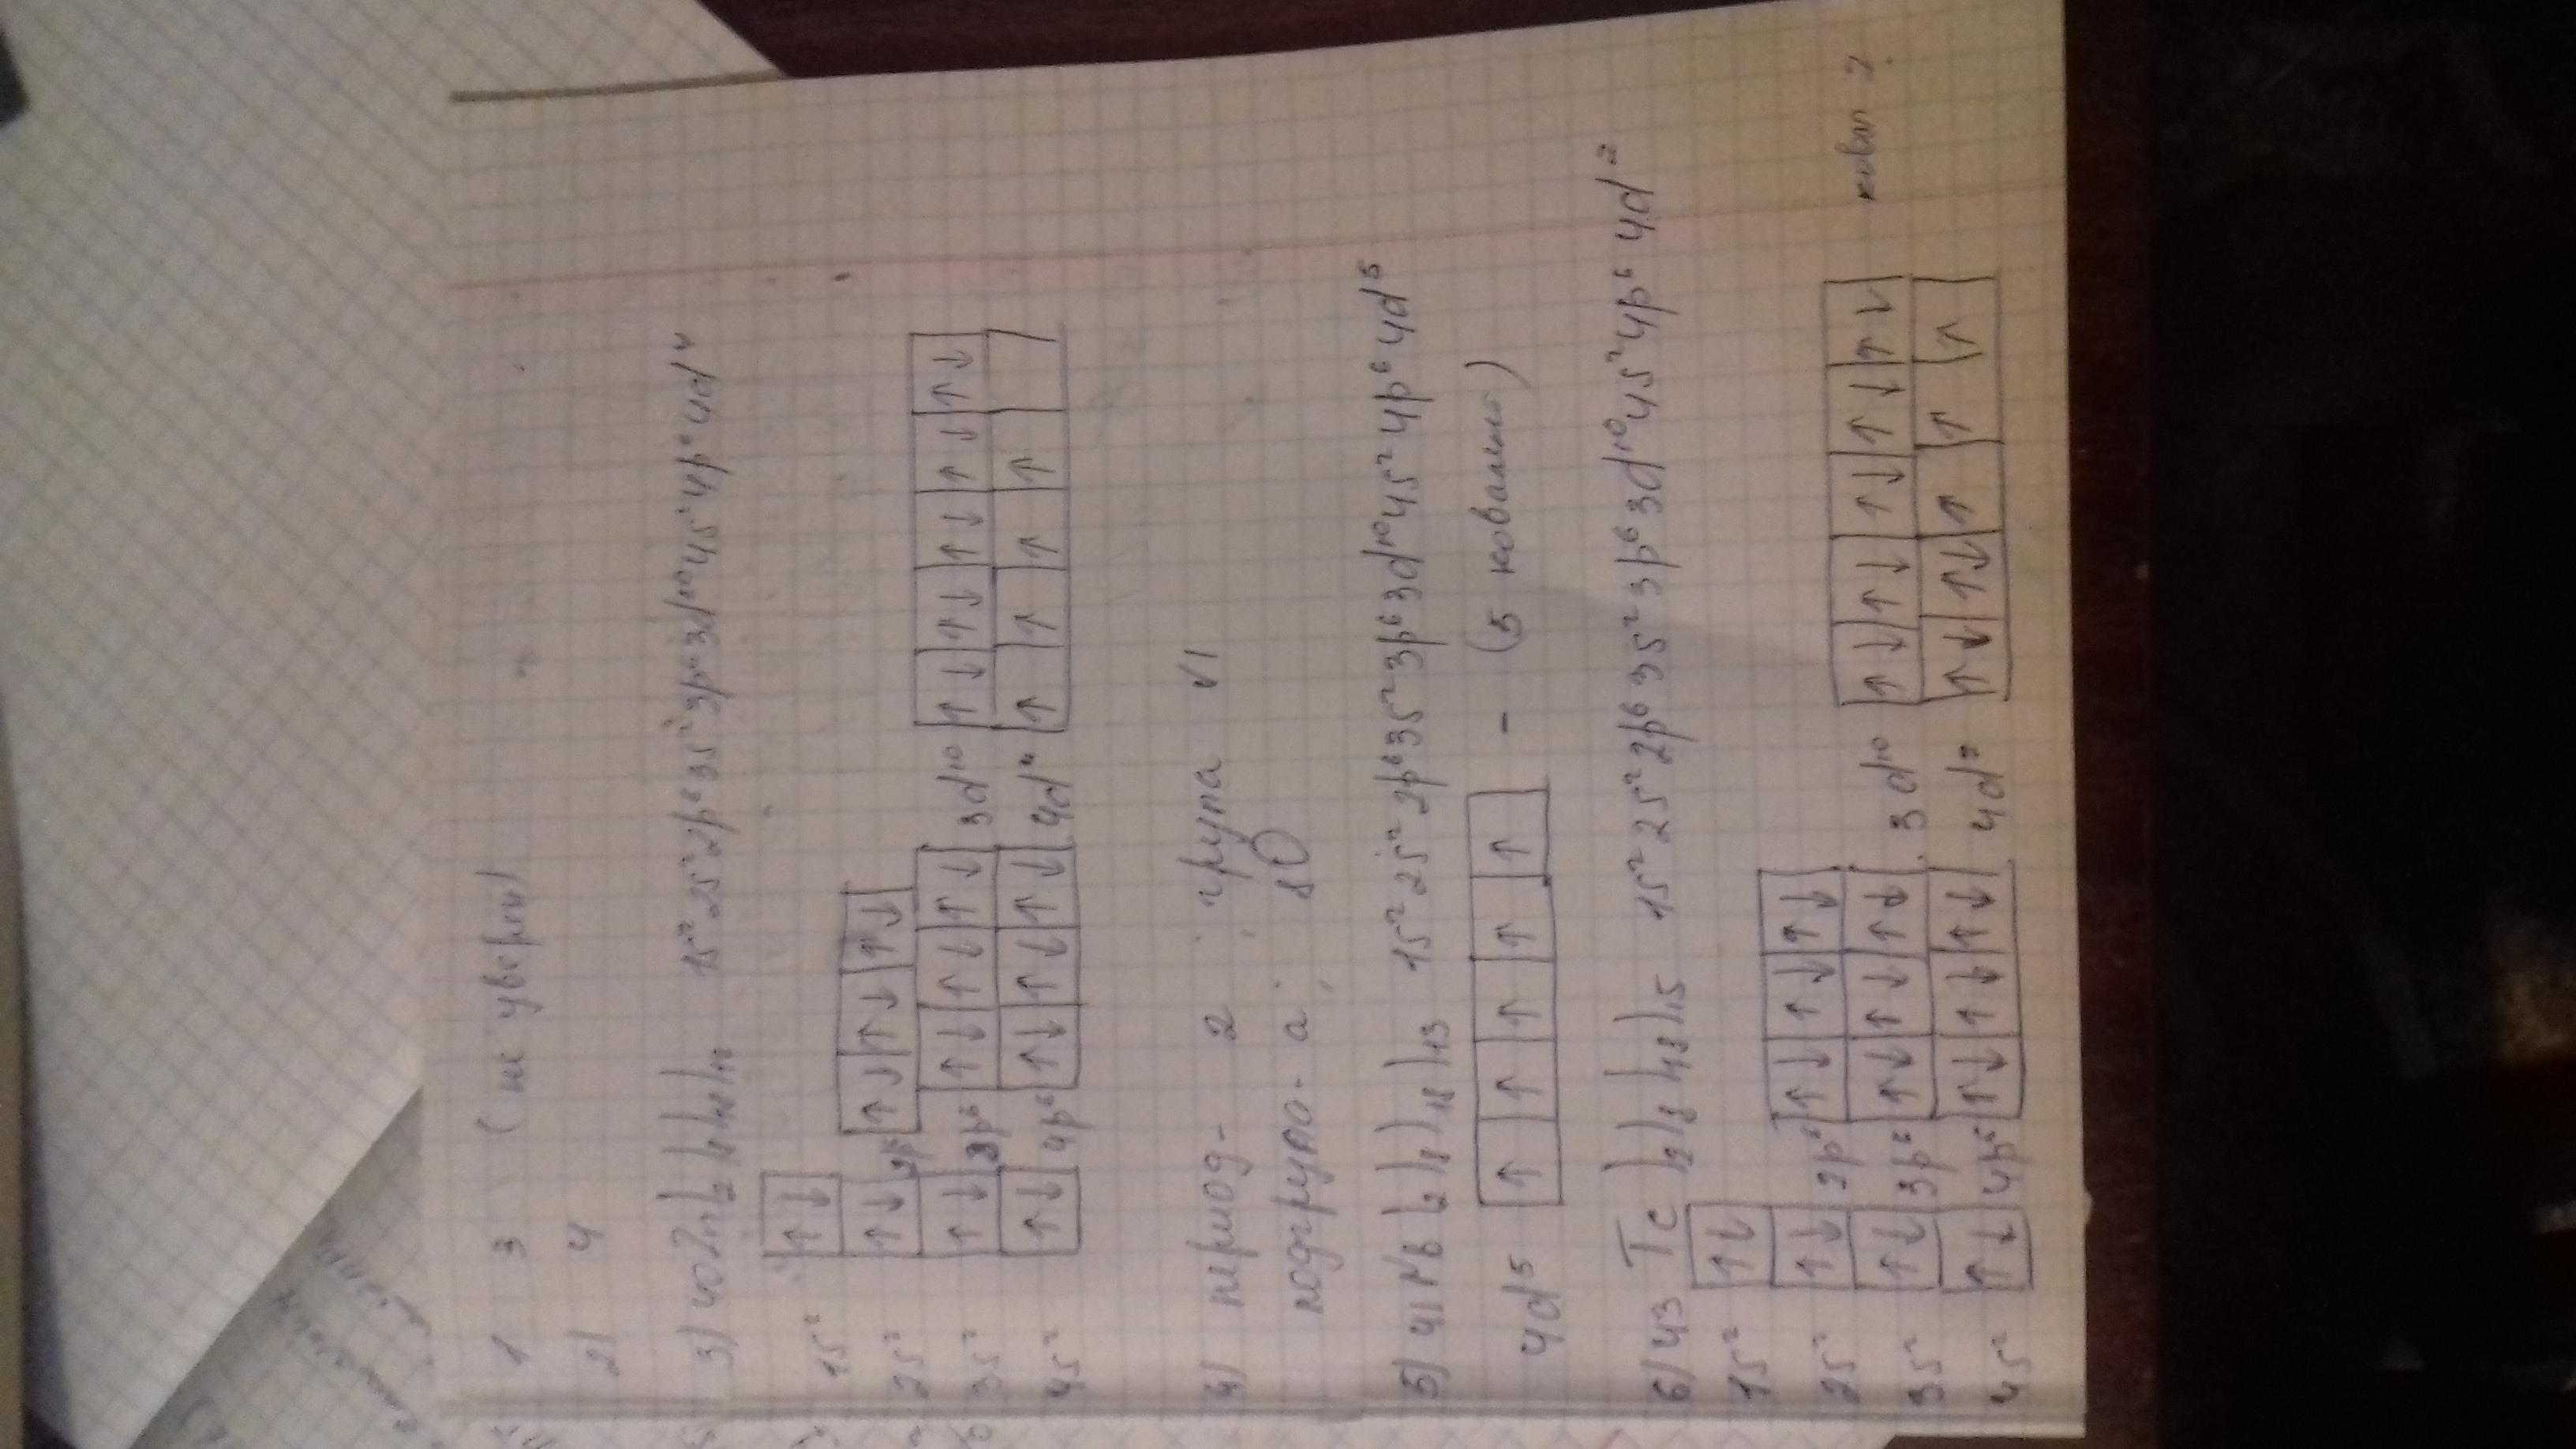 1 3 (не уверен)
2) 4
3) 40Zr )2 )8 )18 )12 1s² 2s² 2p⁶ 3s² 3p⁶ 3d¹⁰ 4s² 4p⁶ 4d⁴
1s² ↑↓
2s² ↑↓ 2p⁶ ↑↓ ↑↓ ↑↓
3s² ↑↓ 3p⁶ ↑↓ ↑↓ ↑↓ 3d¹⁰ ↑↓ ↑↓ ↑↓ ↑↓ ↑↓
4s² ↑↓ 4p⁶ ↑↓ ↑↓ ↑↓ 4d⁴ ↑ ↑ ↑ ↑
4) период - 2 ; група VI
подгрупа - а ; 8O
5) 41 Nb )2 )8 )18 )13 1s² 2s² 2p⁶ 3s² 3p⁶ 3d¹⁰ 4s² 4p⁶ 4d⁵
4d⁵ ↑ ↑ ↑ ↑ ↑ - (5 ковалент)
6) 43 Tc )2 )8 )18 )15 1s² 2s² 2p⁶ 3s² 3p⁶ 3d¹⁰ 4s² 4p⁶ 4d²
1s² ↑↓
2s² ↑↓ 2p⁶ ↑↓ ↑↓ ↑↓
3s² ↑↓ 3p⁶ ↑↓ ↑↓ ↑↓ 3d¹⁰ ↑↓ ↑↓ ↑↓ ↑↓ ↑↓ ковал ?
4s² ↑↓ 4p⁶ ↑↓ ↑↓ ↑↓ 4d⁷ ↑↓ ↑↓ ↑ ↑ ↑